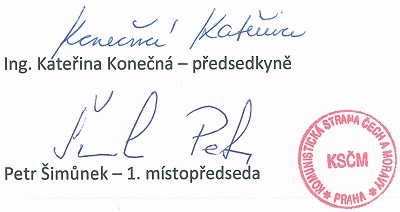 Konečná Kateřina
Ing. Kateřina Konečná – předsedkyně
Petr Šimůnek – 1. místopředseda
KOMUNISTICKÁ STRANA ČECH A MORAVY
KSČM
PRAHA